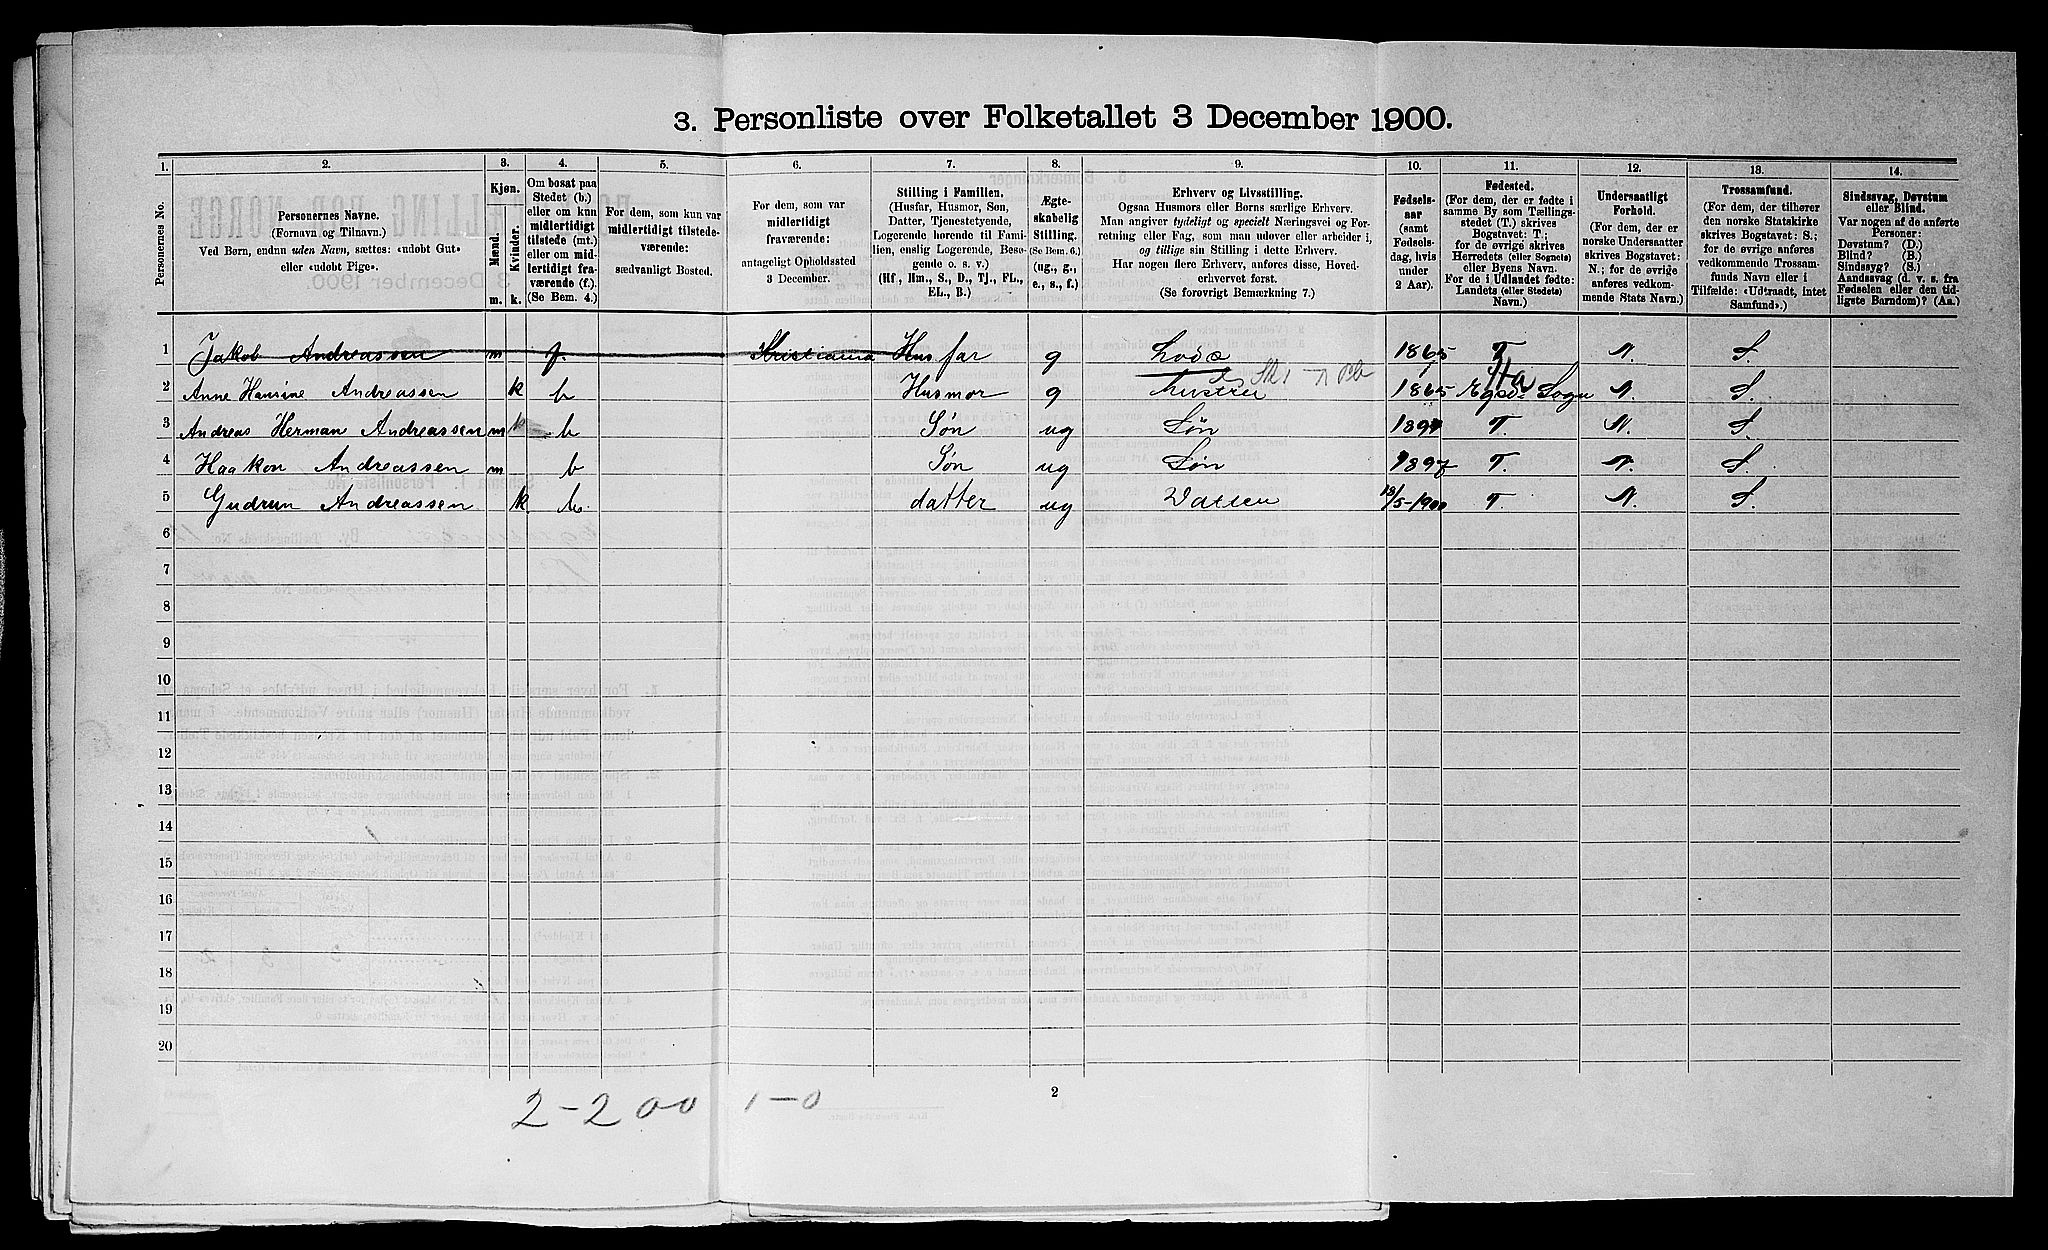 3. Personliste over Folketallet 3 December 1900.
1. 2. 3. 4. 5. 6. 7. 8. 9. 10. 11. 12. 13. 14.
Personernes No.
Personernes Navne.
(Fornavn og Tilnavn.)
Ved Børn, endnu uden Navn, sættes: «udøbt Gut»
eller «udøbt Pige».
Kjøn.
Mænd.
Kvinder.
m. k.
Om bosat paa
Stedet (b.)
eller om kun
midlertidigt
tilstede (mt.)
eller om mid-
lertidigt fra-
værende (f.).
(Se Bem. 4.)
For dem, som kun var
midlertidigt tilstede-
værende:
sædvanligt Bosted.
For dem, som var
midlertidigt
fraværende:
antageligt Opholdssted
3 December.
Stilling i Familien.
(Husfar, Husmor, Søn,
Datter, Tjenestetyende,
Logerende hørende til Fami-
lien, enslig Logerende, Besø-
gende o. s. v.)
(Hf, Hm., S., D., Tj., FL.,
EL., B.)
Ægte-
skabelig
Stilling.
(Se Bem. 6.)
(ug., g.,
e., s., f.)
Erhverv og Livsstilling.
Ogsaa Husmors eller Børns særlige Erhverv.
Man angiver tydeligt og specielt Næringsvei og For-
retning eller Fag, som man udøver eller arbeider i,
og tillige sin Stilling i dette Erhverv.
Har nogen flere Erhverv, anføres disse, Hoved-
erhvervet først.
(Se forøvrigt Bemærkning 7.)
Fødsels-
aar
(samt
Fødsels-
dag, hvis
under
2 Aar).
Fødested.
(For dem, der er fødte i
samme By som Tællings-
stedet (T.) skrives
Bogstavet: T.;
for de øvrige skrives
Herredets (eller Sognets)
eller Byens Navn.
For de i Udlandet fødte:
Landets (eller Stedets)
Navn.)
Undersaatligt
Forhold.
(For dem, der er
norske Undersaatter
skrives Bogstavet:
N.; for de øvrige
anføres vedkom-
mende Stats Navn.)
Trossamfund.
(For dem, der tilhører
den norske Statskirke
skrives Bogstavet: S.;
for de øvrige anføres
vedkommende Trossam-
funds Navn eller i
Tilfælde: «Udtraadt, intet
Samfund».)
Sindssvag, Døvstum
eller Blind.
Var nogen af de anførte
Personer:
Døvstum? (D.)
Blind? (B.)
Sindssyg? (S.)
Aandssvag (d. v. s. fra
Fødselen eller den tid-
ligste Barndom)? (Aa.)
1 Jakob Andreassen m f. Kristiania Husfar g Lods 1865 T N. S.
2 Anne Hansine Andreassen k b Husmor g Hustru 1865 Egsd. Sogn N. S.
3 Andreas Herman Andreassen m k b Søn ug Søn 1894 T. N. S.
4 Haakon Andreassen m b Søn ug Søn 1897 T. N. S.
5 Gudrun Andreassen k b. datter ug Datter 13/5-1900 T. N. S.
6
7
8
9
10
11
12
13
14
15
16
17
18
19
20
2-200 1-0
2